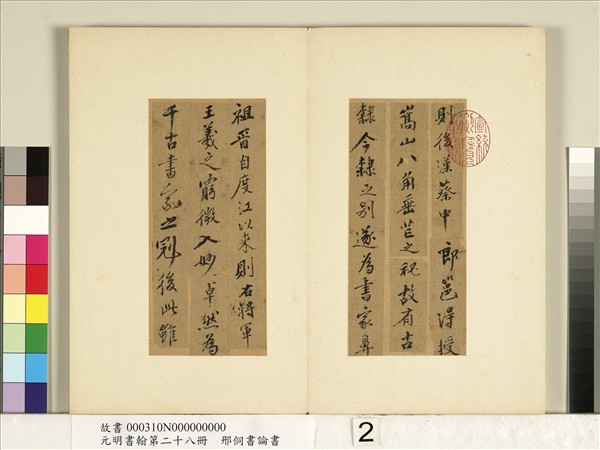 則後漢蔡中郎邕得授
嵩山八角垂芒之祕故有古
隸今隸之別遂為書家鼻
祖晉自度江以來則右將軍
王羲之窮微入妙卓然為
千古書家之冠後此雖
故書 000310N000000000
元明書翰第二十八冊 邢侗書論書
2